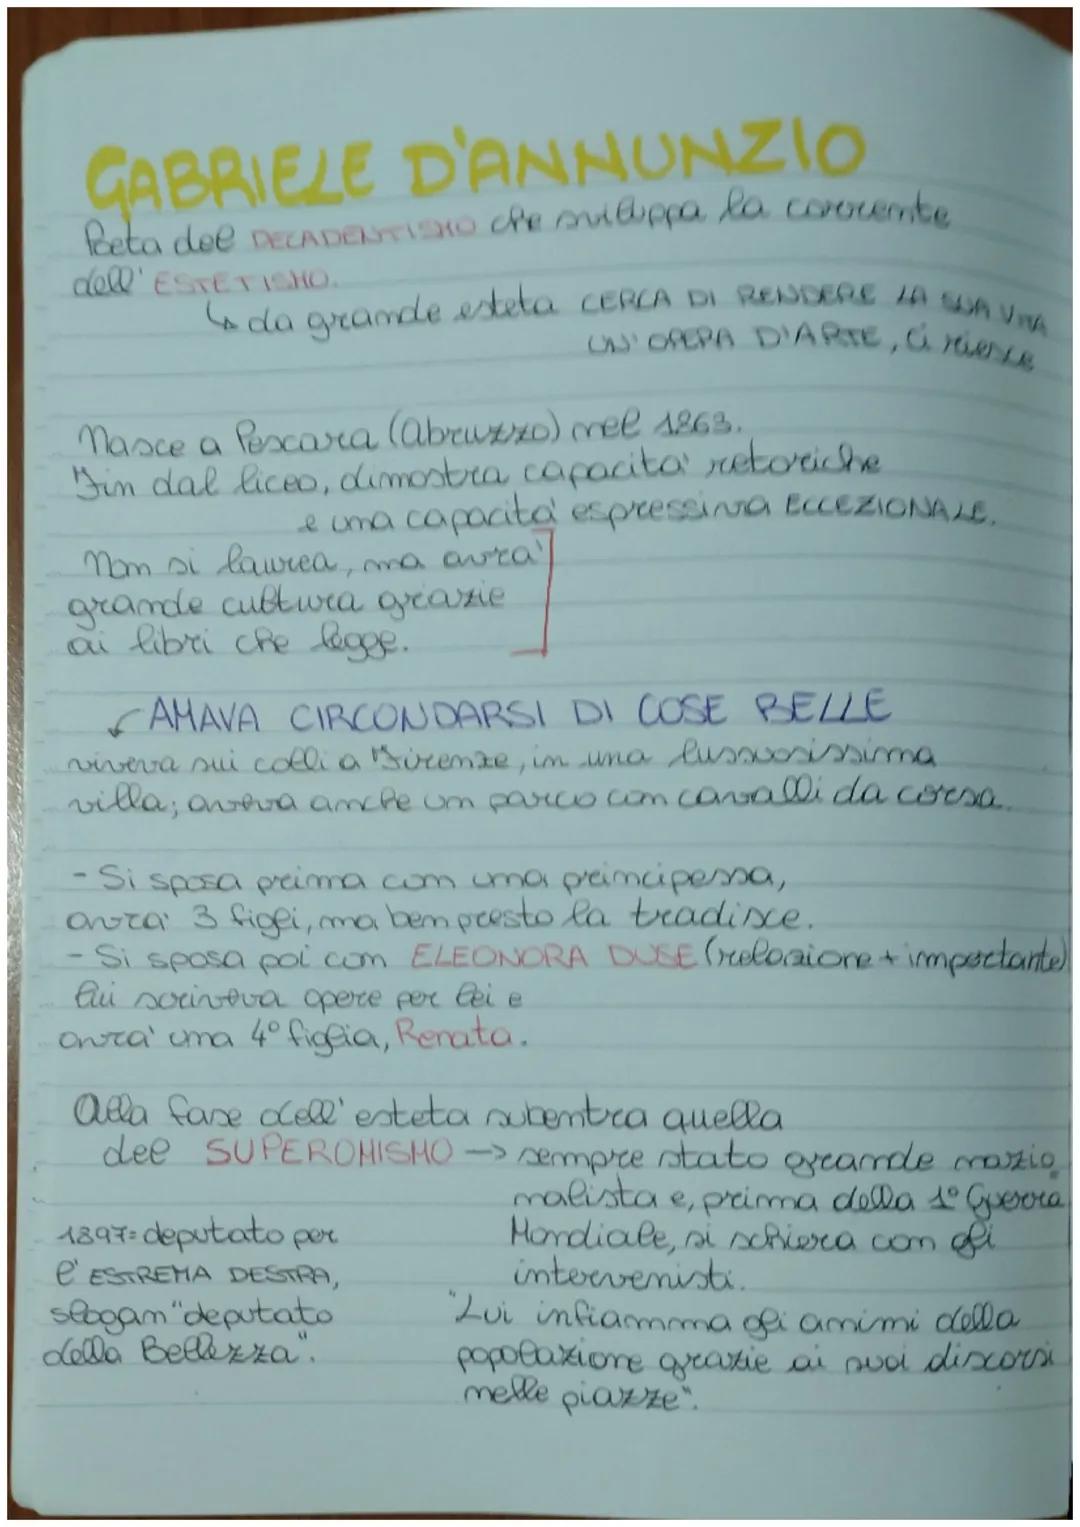 GABRIELE D'ANNUNZIO
Poeta del DECADENTISMO che sviluppa la corrente
dell'ESTETISMO.
↳ da grande esteta CERCA DI RENDERE LA SUA VITA
UN'OPERA D'ARTE, ci riesce
Nasce a Pescara (Abruzzo) nel 1863.
Fin dal liceo, dimostra capacità retoriche
e una capacità espressiva ECCEZIONALE.
Non si laurea, ma avrà
grande cultura grazie
ai libri che legge.
AMAVA CIRCONDARSI DI COSE BELLE
viveva sui colli a Firenze, in una lussuosissima
villa; aveva anche un parco con cavalli da corsa.
- Si sposa prima con una principessa,
avrà 3 figli, ma ben presto la tradisce.
- Si sposa poi con ELEONORA DUSE (relazione + importante)
Lui scriveva opere per lei e
avrà una 4° figlia, Renata.
Alla fase dell'esteta subentra quella
del SUPEROMISMO → sempre stato grande nazio
nalista e, prima della 1° Guerra
Mondiale, si schiera con gli
interventisti.
"Lui infiamma gli animi della
popolazione grazie ai suoi discorsi
nelle piazze".
1897= deputato per
l'ESTREMA DESTRA,
slogan "deputato
della Bellezza".